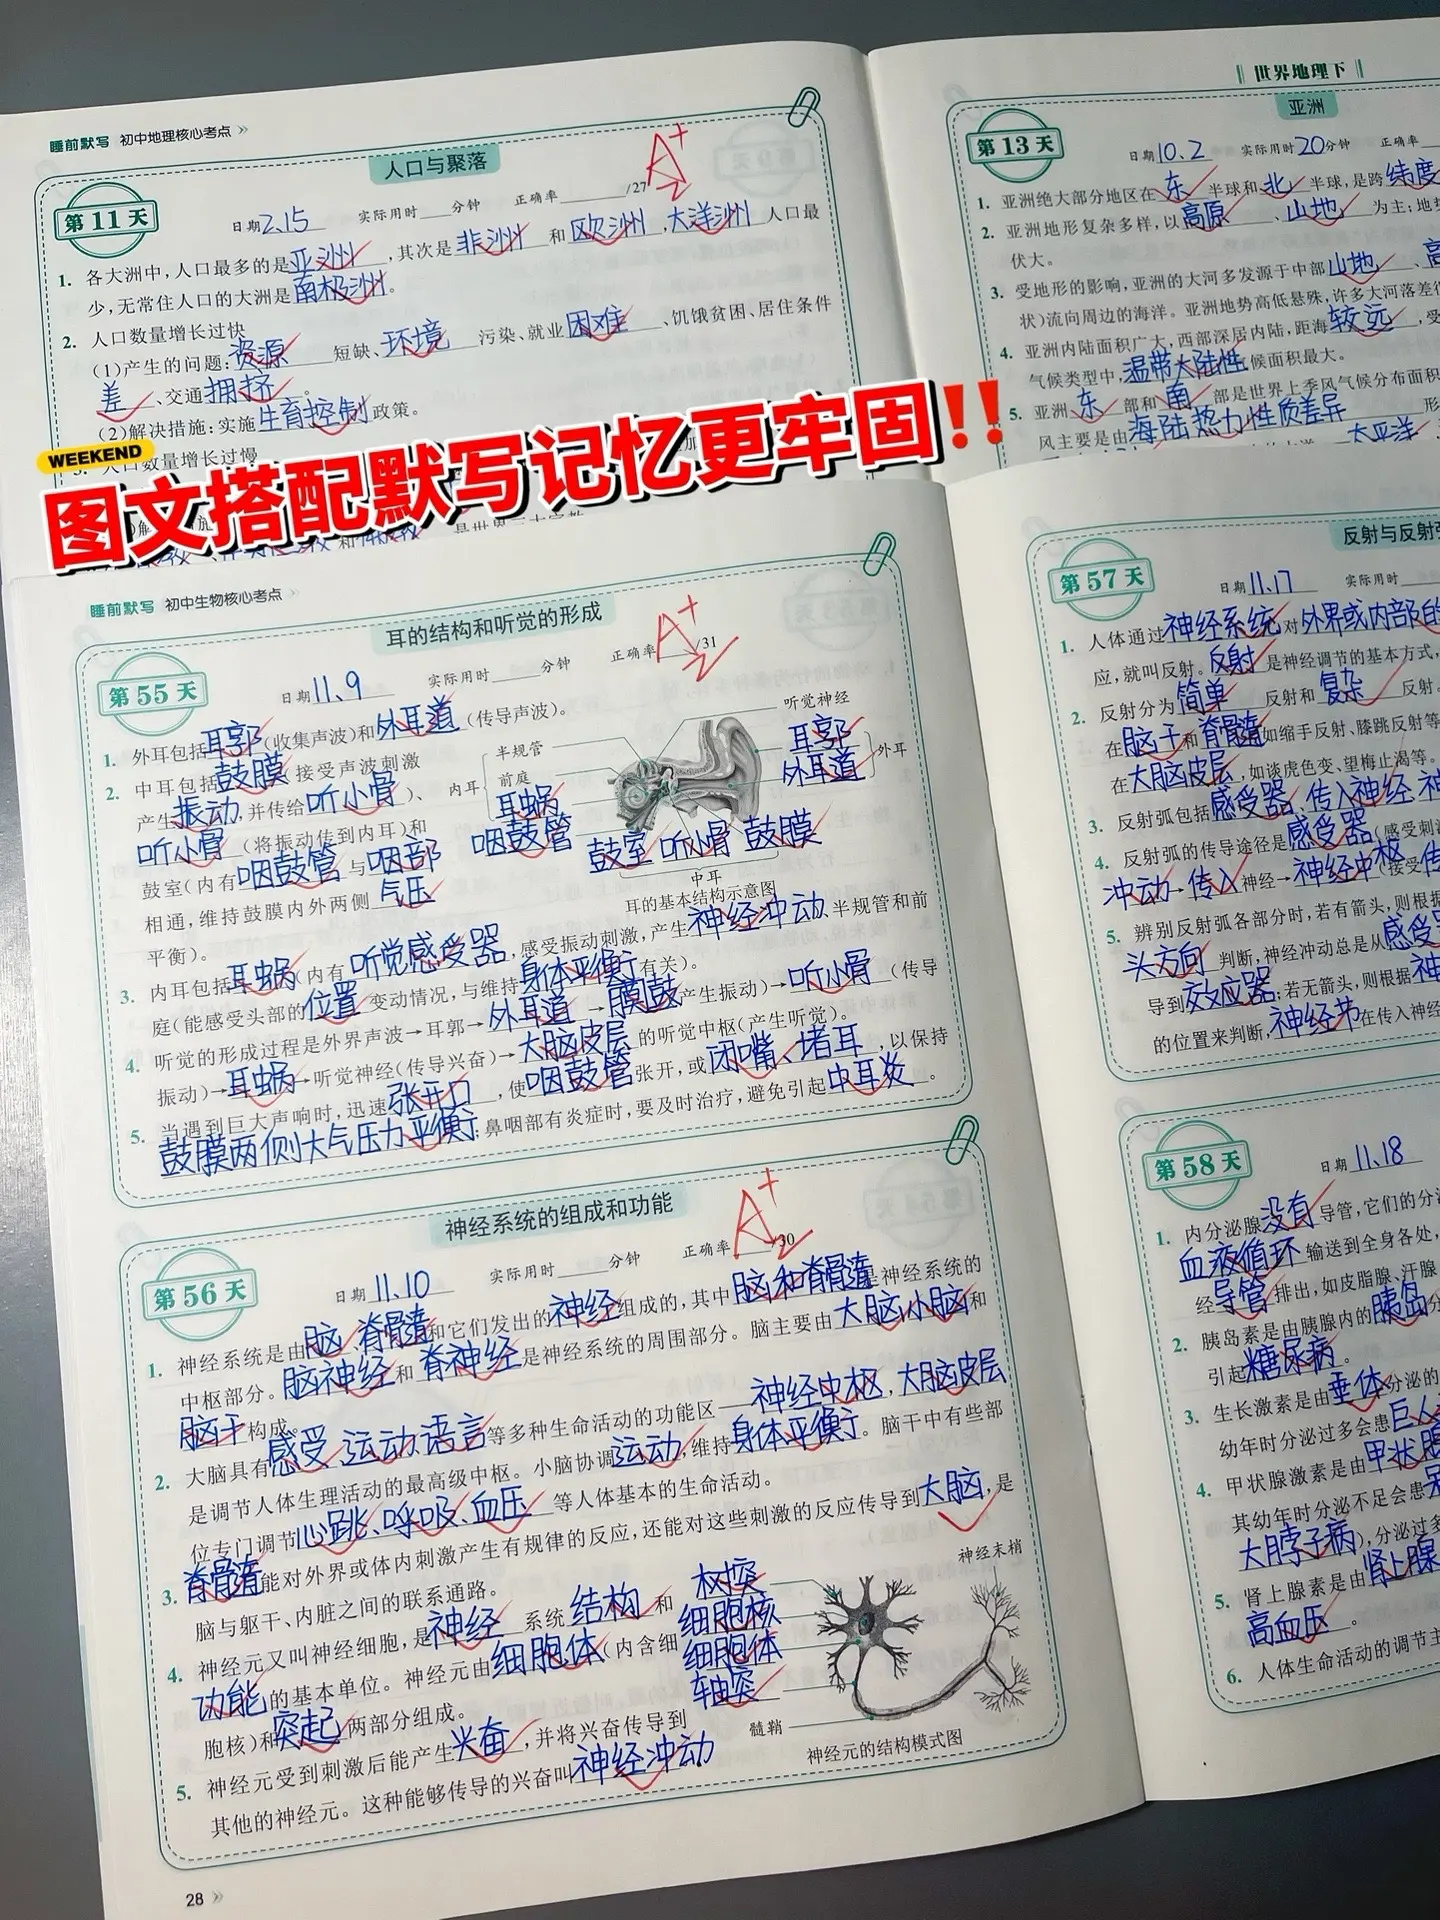 睡前默写 初中地理核心考点
人口与聚落
第11天
日期2.15 实际用时 分钟 正确率 /27
A+
1. 各大洲中,人口最多的是亚洲,其次是非洲和欧洲,大洋洲人口最
少,无常住人口的大洲是南极洲。
2. 人口数量增长过快
(1)产生的问题:资源短缺、环境污染、就业困难、饥饿贫困、居住条件
差、交通拥挤。
(2)解决措施:实施生育控制政策。
人口数量增长过慢
世界地理下
亚洲
第13天
日期10.2 实际用时20分钟 正确率
1. 亚洲绝大部分地区在东半球和北半球,是跨纬度
2. 亚洲地形复杂多样,以高原、山地为主;地
伏大。
3. 受地形的影响,亚洲的大河多发源于中部山地、高
状)流向周边的海洋。亚洲地势高低悬殊,许多大河落差
4. 亚洲内陆面积广大,西部深居内陆,距海较远,受
气候类型中,温带大陆性候面积最大。
5. 亚洲东部和南部是世界上季风气候分布面积
风主要是由海陆热力性质差异形
太平洋
WEEKEND
图文搭配默写记忆更牢固!!
睡前默写 初中生物核心考点
耳的结构和听觉的形成
第55天
日期11.9 实际用时 分钟 正确率 /31
A+
1. 外耳包括耳郭(收集声波)和外耳道(传导声波)。
2. 中耳包括鼓膜(接受声波刺激
产生振动,并传给听小骨)、
听小骨(将振动传到内耳)和
鼓室(内有咽鼓管与咽部
相通,维持鼓膜内外两侧气压
平衡)。
听觉神经
半规管
前庭
内耳
耳蜗
咽鼓管
耳郭
外耳道
外耳
鼓室 听小骨 鼓膜
中耳
耳的基本结构示意图
3. 内耳包括耳蜗(内有听觉感受器,感受振动刺激,产生神经冲动、半规管和前
庭(能感受头部的位置变动情况,与维持身体平衡有关)。
4. 听觉的形成过程是外界声波→耳郭→外耳道→膜鼓产生振动)→听小骨(传导
振动)→耳蜗→听觉神经(传导兴奋)→大脑皮层的听觉中枢(产生听觉)。
5. 当遇到巨大声响时,迅速张开口,使咽鼓管张开,或闭嘴、堵耳,以保持
鼓膜两侧大气压力平衡;鼻咽部有炎症时,要及时治疗,避免引起中耳炎。
神经系统的组成和功能
第56天
日期11.10 实际用时 分钟 正确率 /30
A+
1. 神经系统是由脑、脊髓和它们发出的神经组成的,其中脑和脊髓是神经系统的
中枢部分。脑神经和脊神经是神经系统的周围部分。脑主要由大脑、小脑和
脑干构成。
2. 大脑具有感受、运动、语言等多种生命活动的功能区——神经中枢,大脑皮层
是调节人体生理活动的最高级中枢。小脑协调运动,维持身体平衡。脑干中有些部
位专门调节心跳、呼吸、血压等人体基本的生命活动。
3. 脊髓能对外界或体内刺激产生有规律的反应,还能对这些刺激的反应传导到大脑,是
脑与躯干、内脏之间的联系通路。
4. 神经元又叫神经细胞,是神经系统结构和
功能的基本单位。神经元由细胞体(内含细
胞核)和突起两部分组成。
5. 神经元受到刺激后能产生兴奋,并将兴奋传导到
其他的神经元。这种能够传导的兴奋叫神经冲动
树突
细胞核
细胞体
轴突
髓鞘
神经末梢
神经元的结构模式图
28
反射与反射弧
第57天
日期11.17 实际用时
1. 人体通过神经系统对外界或内部的
应,就叫反射。反射是神经调节的基本方式,
2. 反射分为简单反射和复杂反射。
在脑干和脊髓如缩手反射、膝跳反射等
在大脑皮层,如谈虎色变、望梅止渴等。
3. 反射弧包括感受器、传入神经、神
4. 反射弧的传导途径是感受器(感受刺
冲动→传入神经→神经中枢(接受传
5. 辨别反射弧各部分时,若有箭头,则根据
头方向判断,神经冲动总是从感受器
导到效应器;若无箭头,则根据神
的位置来判断,神经节在传入神经
第58天
日期11.18
1. 内分泌腺没有导管,它们的分
血液循环输送到全身各处,
经导管排出,如皮脂腺、汗腺
2. 胰岛素是由胰腺内的胰岛分
引起糖尿病。
3. 生长激素是由垂体分泌的
幼年时分泌过多会患巨人
4. 甲状腺激素是由甲状腺
其幼年时分泌不足会患呆
大脖子病),分泌过多
5. 肾上腺素是由肾上腺
高血压。
6. 人体生命活动的调节主